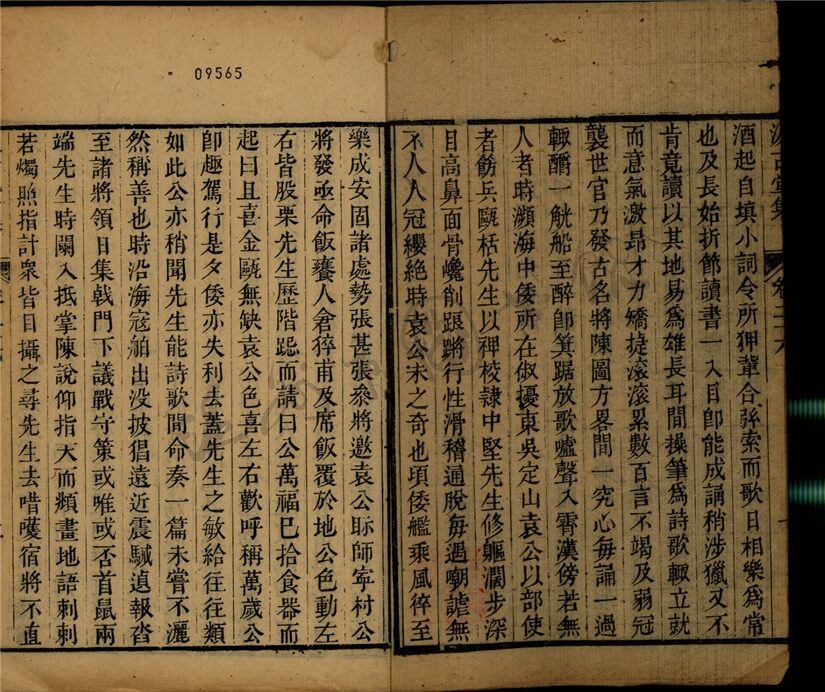 09565
酒起自填小詞令所狎輩合彈索而歌日相樂為常
也及長始折節讀書一入目卽能成誦稍涉獵又不
肯竟讀以其地易為雄長耳間操筆為詩歌輒立就
而意氣激昂才力矯捷滾滾累數百言不竭及弱冠
襲世官乃發古名將陳圖方畧間一究心每誦一過
輒酹一觥船至醉卽箕踞放歌嘘聲入霄漢傍若無
人者時瀕海中倭所在俶擾東吳定山袁公以部使
者飭兵甌栝先生以裨校隷中堅先生修軀濶步深
目高鼻面骨巉削踉蹡行性滑稽通脫每遇嘲謔無
不人人冠纓絕時袁公未之奇也頃倭艦乘風徑至
樂成安固諸處勢張甚張叅將邀袁公眎師寜村公
將發亟命飯饔人倉猝甫及席飯覆於地公色動左
右皆股栗先生歷階跽而請曰公萬福巳拾食器而
起曰且喜金甌無缺袁公色喜左右歡呼稱萬歲公
卽趣駕行是夕倭亦失利去蓋先生之敏給往往類
如此公亦稍聞先生能詩歌間命奏一篇未嘗不灑
然稱善也時沿海寇舶出没披猖遠近震駴遉報沓
至諸將領日集戟門下議戰守策或唯或否首鼠兩
端先生時闌入抵掌陳說仰指天而頫畫地語刺刺
若燭照指計衆皆目攝之尋先生去唶嚄宿將不直